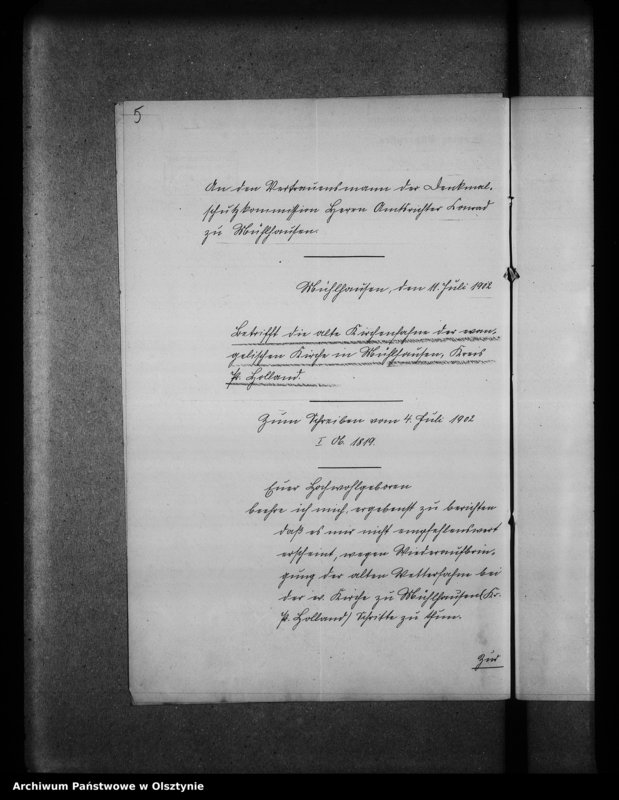 5
An den Vertrauensmann der Denkmal-
schutzkommission Herrn Amtsrichter Conrad
zu Mühlhausen.
Mühlhausen, den 11. Juli 1902
Betrifft die alte Kirchenfahne der evan-
gelischen Kirche in Mühlhausen, Kreis
Pr. Holland.
Zum Schreiben vom 4. Juli 1902
I Ob. 1819.
Euer Hochwohlgeboren
beehre ich mich, ergebenst zu berichten
daß es mir nicht empfehlenswert
erscheint, wegen Wiederaufbrin-
gung der alten Wetterfahne bei
der ev. Kirche zu Mühlhausen (Kr.
Pr. Holland) Schritte zu thun.
Zur
Archiwum Państwowe w Olsztynie